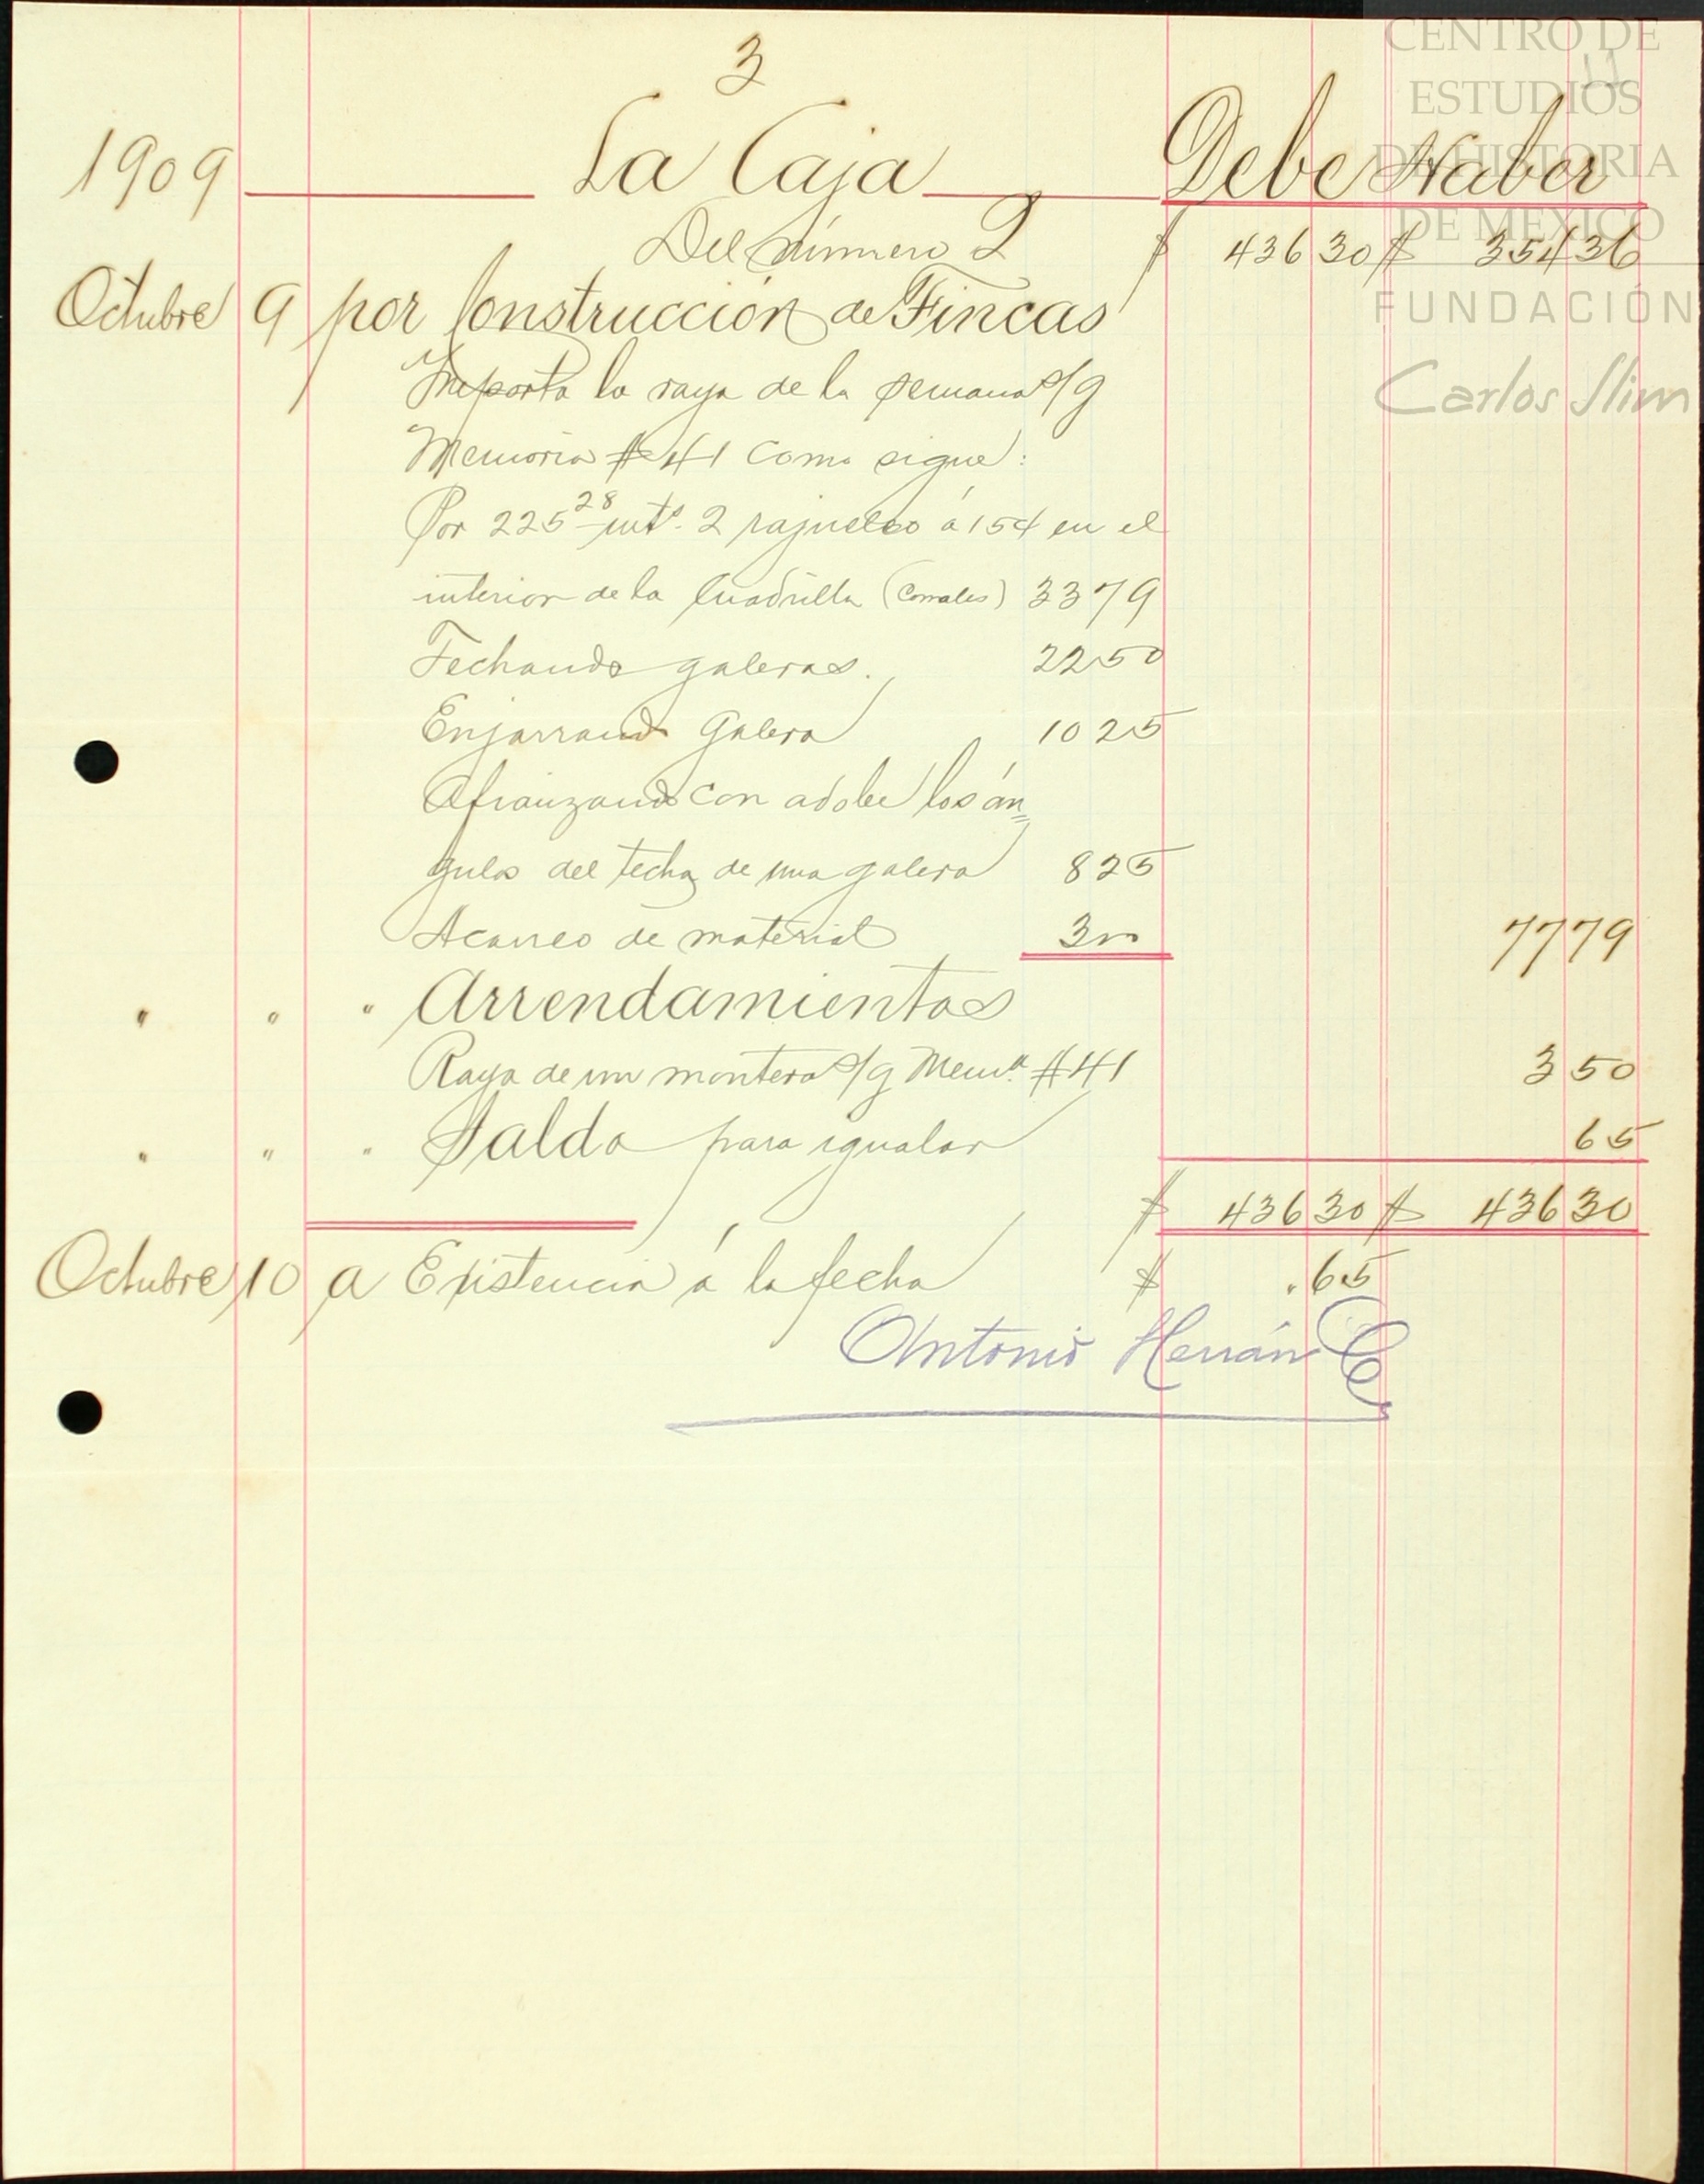 3
1909 La Caja Debe Haber
Del número 2 $ 436 30 $ 354 36
Octubre 9 por Construcción de Fincas
Importa la raya de la semana s/g
Memoria # 41 como sigue:
Por 225 28 mts. 2 rajueleo á 15¢ en el
interior de la Cuadrilla (Corrales) 33 79
Techando galeras. 22 50
Enjarrando Galera 10 25
Afianzando con adobe los án=
gulos del techo de una galera 8 25
Acarreo de material 3 00 77 79
" " " Arrendamientos
Raya de un montero s/g Mema. # 41 3 50
" " " Saldo para igualar 65
$ 436 30 $ 436 30
Octubre 10 a Existencia á la fecha $ .65
Antonio Herrán C
CENTRO DE
ESTUDIOS
DE HISTORIA
DE MEXICO
FUNDACIÓN
Carlos Slim